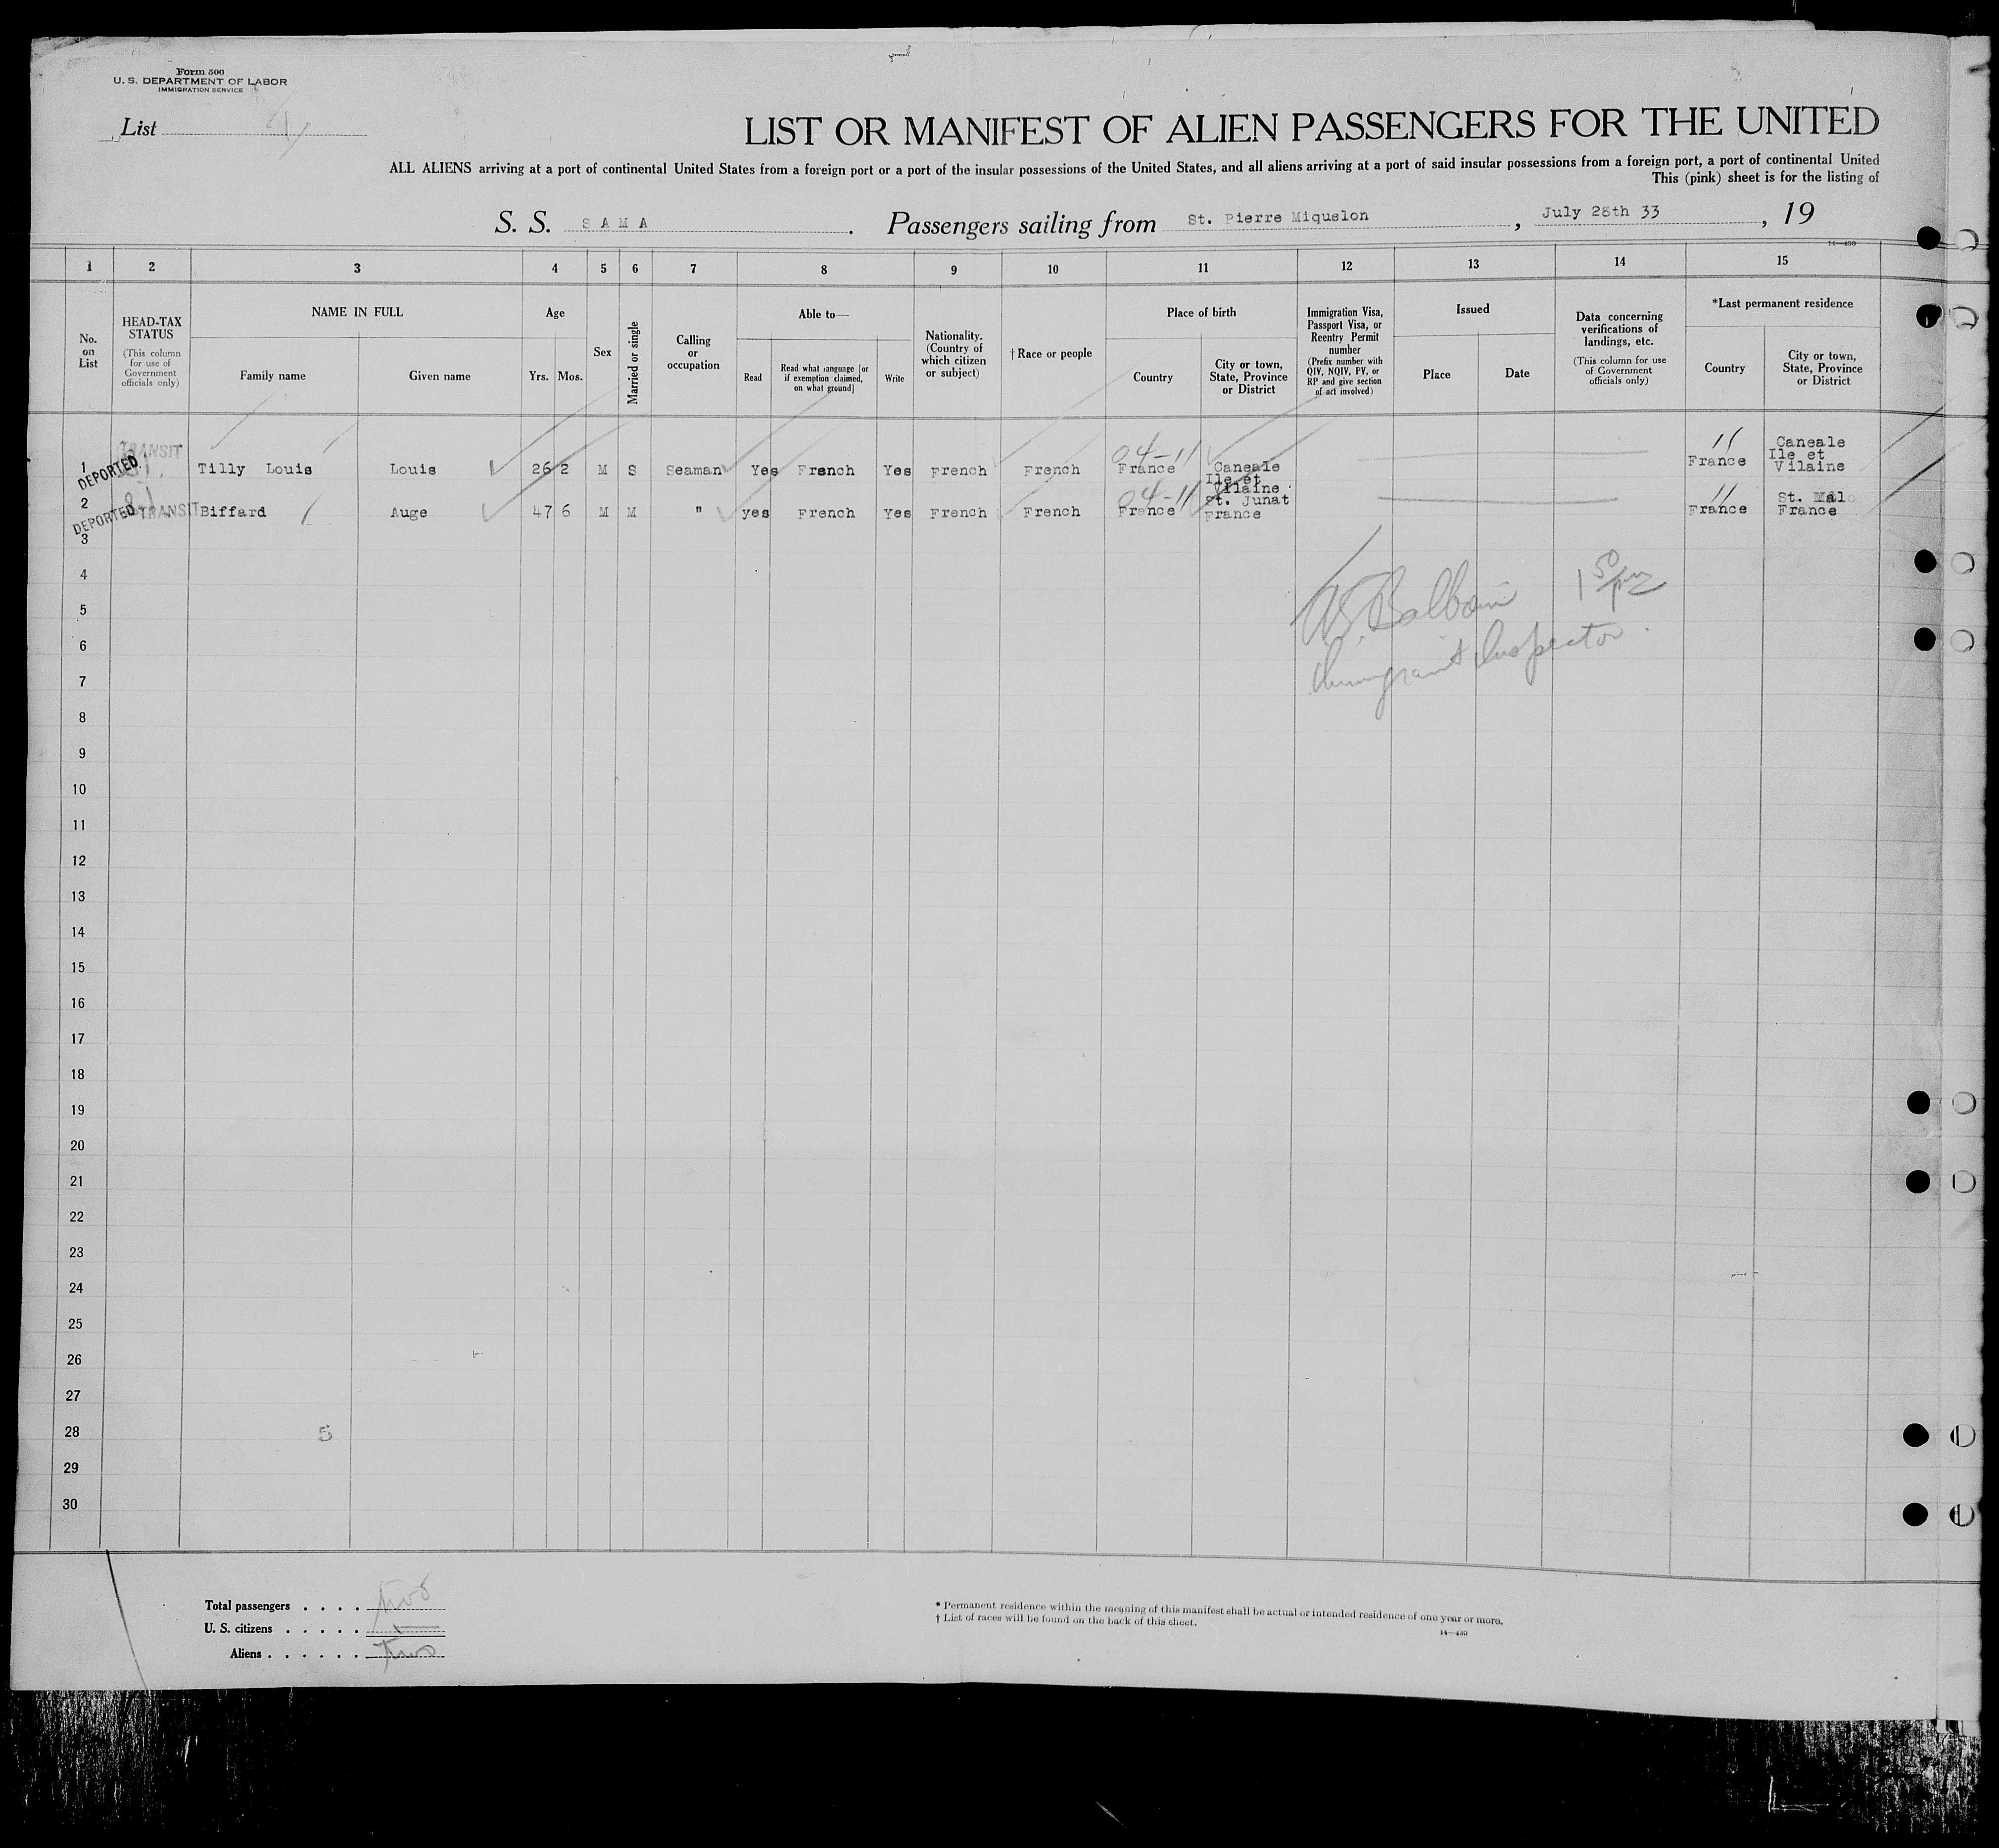 Form 500
U. S. DEPARTMENT OF LABOR
IMMIGRATION SERVICE
List
LIST OR MANIFEST OF ALIEN PASSENGERS FOR THE UNITED
ALL ALIENS arriving at a port of continental United States from a foreign port or a port of the insular possessions of the United States, and all aliens arriving at a port of said insular possessions from a foreign port, a port of continental United
This (pink) sheet is for the listing of
S. S. SAMA . Passengers sailing from St. Pierre Miquelon , July 28th 33 , 19
14—430
1 2 3 4 5 6 7 8 9 10 11 12 13 14 15
No. on List
HEAD-TAX STATUS (This column for use of Government officials only)
NAME IN FULL
Family name Given name
Age
Yrs. Mos.
Sex
Married or single
Calling or occupation
Able to—
Read
Read what language [or if exemption claimed, on what ground]
Write
Nationality. (Country of which citizen or subject)
† Race or people
Place of birth
Country
City or town, State, Province or District
Immigration Visa, Passport Visa, or Reentry Permit number (Prefix number with QIV, NQIV, PV, or RP and give section of act involved)
Issued
Place Date
Data concerning verifications of landings, etc. (This column for use of Government officials only)
*Last permanent residence
Country
City or town, State, Province or District
1 DEPORTED. TRANSIT Tilly Louis Louis 26 2 M S Seaman Yes French Yes French French 04-11 France Caneale Ile et Vilaine 11 France Caneale Ile et Vilaine
2 DEPORTED. TRANSIT Biffard Auge 47 6 M M " yes French Yes French French 04-11 France St. Junat France 11 France St. Malo France
3
4
5
6
7
8
9
10
11
12
13
14
15
16
17
18
19
20
21
22
23
24
25
26
27
28
29
30
1 50 pm
Immigrant Inspector.
5
Total passengers . . . . two
U. S. citizens . . . . .
Aliens . . . . . . two
* Permanent residence within the meaning of this manifest shall be actual or intended residence of one year or more.
† List of races will be found on the back of this sheet.
14—430